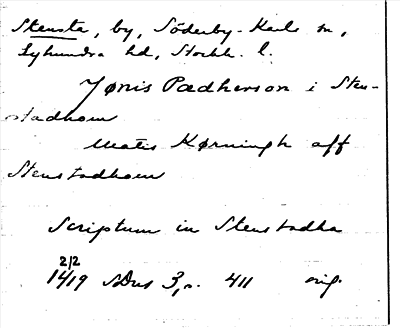 Stensta, by, Söderby-Karls sn,
Lyhundra hd, Stockh. l.
Jønis Pædherson i Sten-
stadhom
Matis Kørningh aff
Stenstadhom
Scriptum in Stenstadha
2/2
1419 SDns 3, s. 411 orig.